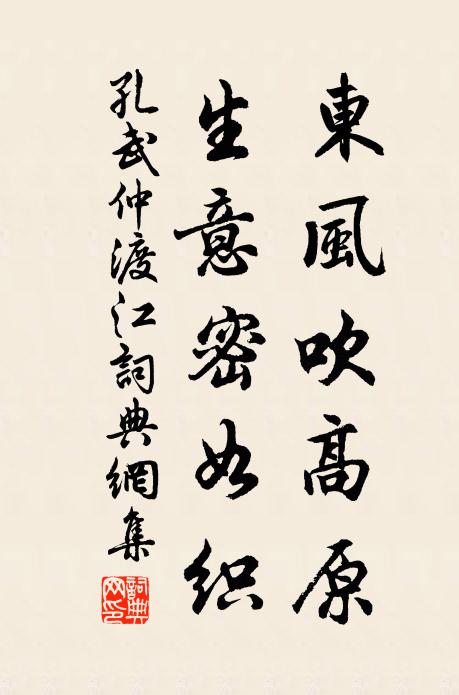 東風吹高原
生意密如织
孔武仲渡江詞典網集
詞典网印